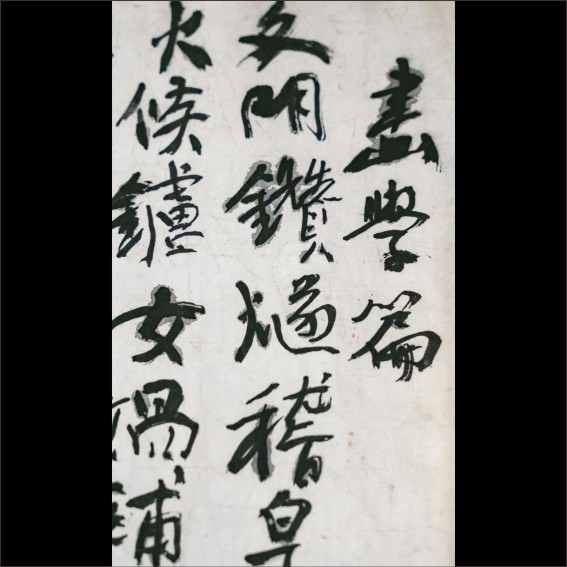 畫學篇
文明鑽燧稽皇
火候鑪女媧補